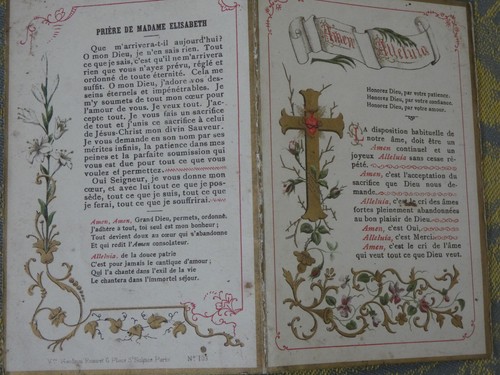 PRIÈRE DE MADAME ELISABETH
Que m'arrivera-t-il aujourd'hui?
O mon Dieu, je n'en sais rien. Tout
ce que je sais, c'est qu'il ne m'arrivera
rien que vous n'ayez prévu, réglé et
ordonné de toute éternité. Cela me
suffit. O mon Dieu, j'adore vos des-
seins éternels et impénétrables. Je
m'y soumets de tout mon cœur pour
l'amour de vous. Je veux tout. J'ac-
cepte tout. Je vous fais un sacrifice
de tout et j'unis ce sacrifice à celui
de Jésus-Christ mon divin Sauveur.
Je vous demande en son nom par ses
mérites infinis, la patience dans mes
peines et la parfaite soumission qui
vous est due pour tous ce que vous
voulez et permettez.
Oui Seigneur, je vous donne mon
cœur, et avec lui tout ce que je pos-
sède, tout ce que je suis, tout ce que
je ferai, tout ce que je souffrirai.
Amen, Amen, Grand Dieu, permets, ordonne,
J'adhère à tout, toi seul est mon bonheur;
Tout devient doux au cœur qui s'abandonne
Et qui redit l'Amen consolateur.
Alleluia, de la douce patrie
C'est pour jamais le cantique d'amour;
Qui l'a chanté dans l'exil de la vie
Le chantera dans l'immortel séjour.
Paris
Nº 153
Amen
Alleluia
Honorez Dieu, par votre patience.
Honorez Dieu, par votre confiance.
Honorez Dieu, par votre amour.
La disposition habituelle de
notre âme, doit être un
Amen continuel et un
joyeux Alleluia sans cesse
répété.
Amen, c'est l'acceptation du
sacrifice que Dieu nous de-
mande.
Alleluia, c'est le cri des âmes
fortes pleinement abandonnées
au bon plaisir de Dieu.
Amen, c'est Oui,
Alleluia, c'est Merci
Amen, c'est le cri de l'âme
qui veut tout ce que Dieu veut.